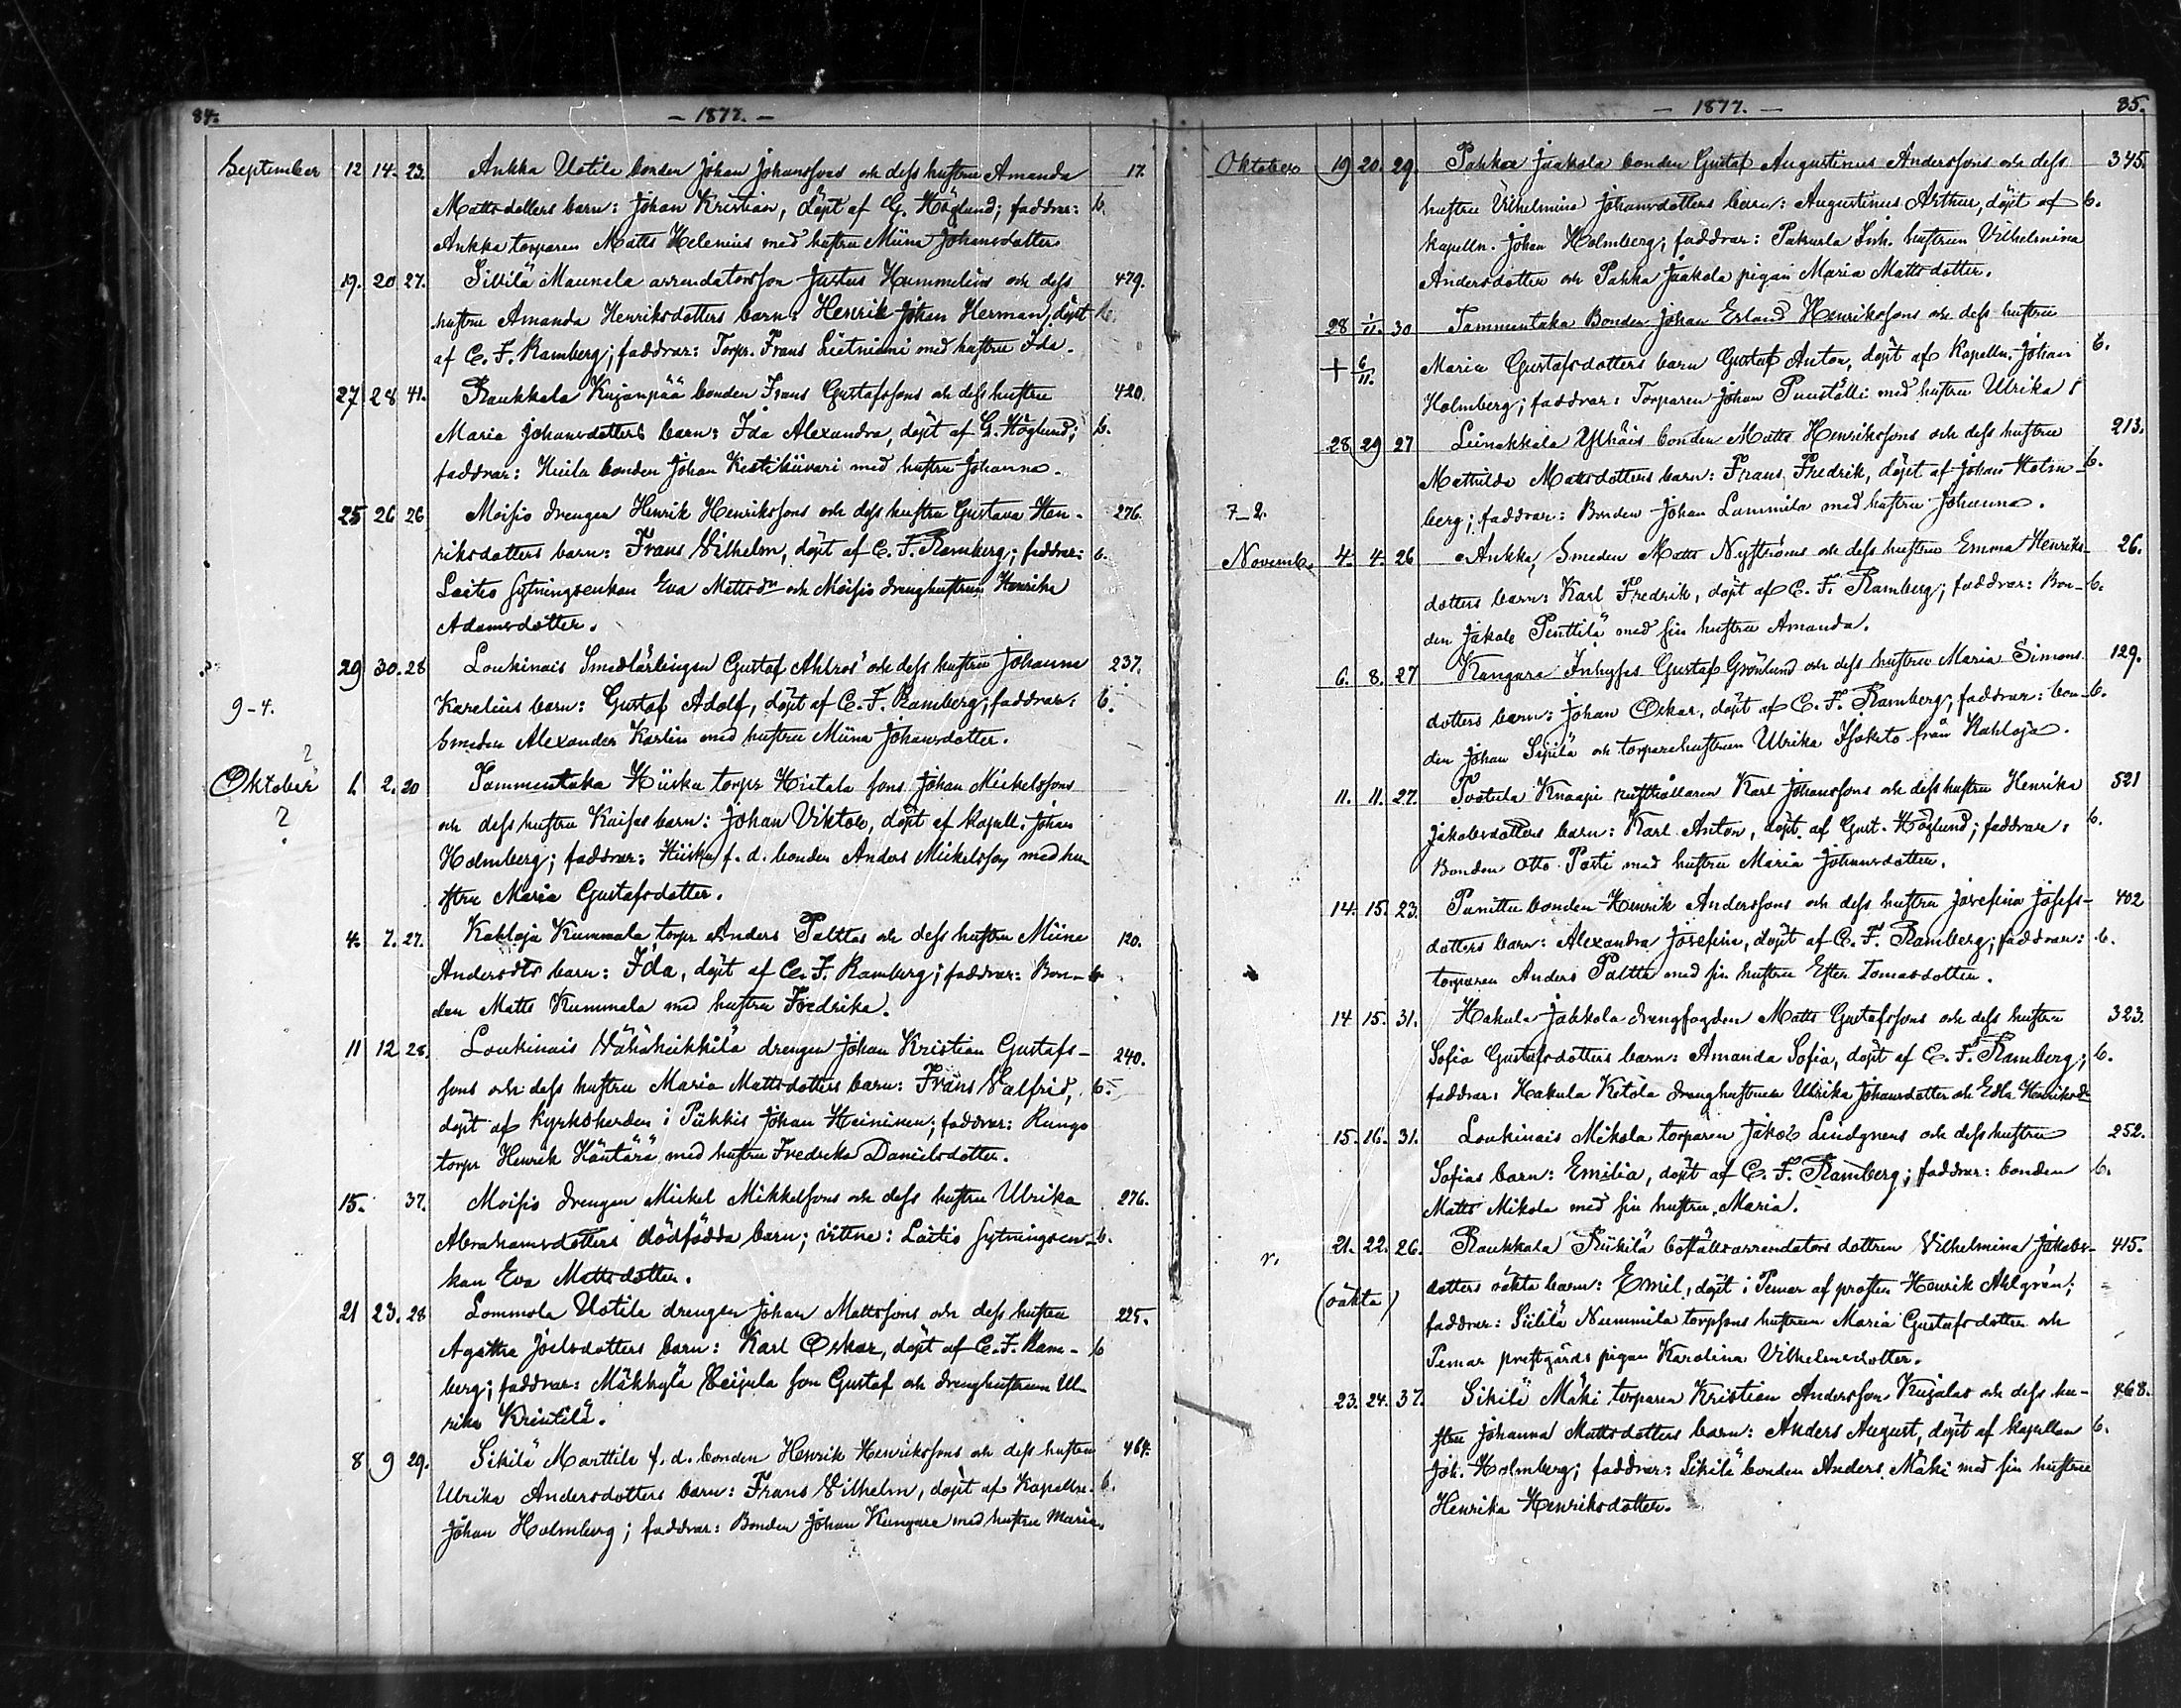 84. - 1877. -
September 12 14. 23. Ankka Uotila bonden Johan Johanssons och dess hustru Amanda 17.
Mattsdotters barn: Johan Kristian, döpt af G. Höglund; faddrar: b.
Ankka torparen Matts Helenius med hustru Miina Johansdotter.
19. 20 27. Sillilä Maunela arrendatorsson Justus Hummelins och dess 479.
hustru Amanda Henriksdotters barn: Henrik Johan Herman, döpt b.
af C. F. Ramberg; faddrar: Torpr. Frans Lietniemi med hustru Ida.
27 28 41. Raukkala Kujanpää bonden Frans Gustafssons och dess hustru 420.
Maria Johansdotters barn: Ida Alexandra, döpt af G. Höglund; b.
faddrar: bonden Johan Kestikiivari med hustru Johanna.
25 26 26 Moisio drengen Henrik Henrikssons och dess hustru Gustava Hen- 276.
riksdotters barn: Frans Vilhelm, döpt af C. F. Ramberg; faddrar: b.
Laitio sytningsenkan Eva Mattsdr och Moisio drenghustrun Henrika
Adamsdotter.
29 30. 28 Loukinais Smedlärlingen Gustaf Ahlros' och dess hustru Johanna 237.
9-4. Karelius barn: Gustaf Adolf, döpt af C. F. Ramberg; faddrar: b.
Smeden Alexander Karlin med hustru Miina Johansdotter.
?
Oktober 1. 2. 20 Tammentaka Hiiska torpr Hietala sons Johan Mickelssons
? och dess hustru Kaisas barn: Johan Viktor, döpt af Kapell. Johan
Holmberg; faddrar: Hiiska f. d. bonden Anders Mickelsson med hu-
stru Maria Gustafsdotter.
4. 7. 27. Kahloja Kummala torpr Anders Palttas och dess hustru Miina 120.
Andersdtrs barn: Ida, döpt af C. F. Ramberg; faddrar: Bon- b.
den Matts Kummala med hustru Fredrika.
11 12 28. Loukinais Vähäheikkilä drengen Johan Kristian Gustafs- 240.
sons och dess hustru Maria Mattsdotters barn: Frans Valfrid, b.
döpt af kyrkoherden i Piikkis Johan Heininen; faddrar: Runge
torpr Henrik Häntärä med hustru Fredrika Danielsdotter.
15. 37. Moisio drengen Mickel Mikkelsons och dess hustru Ulrika 276.
Abrahamsdotters dödfödda barn; vittne: Laitio sytningsen- b.
kan Eva Mattsdotter.
21 23. 28 Lommola Uotila drengen Johan Mattssons och dess hustru 225.
Agatha Joelsdotters barn: Karl Oskar, döpt af C. F. Ram- b
berg; faddrar: Mäkkylä Veijula son Gustaf och drenghustrun Ul-
rika Krintilä.
8 9 29. Sikilä Marttila f. d. bonden Henrik Henrikssons och dess hustru 464.
Ulrika Andersdotters barn: Frans Vilhelm, döpt af Kapelln. b.
Johan Holmberg; faddrar: Bonden Johan Kungara med hustru Maria.
- 1877. - 85.
Oktober 19 20. 29. Pahka Jaakola bonden Gustaf Augustinus Anderssons och dess 345.
hustru Vilhelmina Johansdotters barn: Augustinus Arthur, döpt af b.
kapelln. Johan Holmberg; faddrar: Pakurla Inh. hustrun Vilhelmina
Andersdotter och Pahka Jaakola pigan Maria Mattsdotter.
28 1/11. 30 Tammentaka Bonden Johan Erland Henrikssons och dess hustru
+ 6/11. Maria Gustafsdotters barn Gustaf Anton, döpt af Kapelln. Johan b.
Holmberg; faddrar: Torparen Johan Puuställi med hustru Ulrika
28 29 27 Leinakkala Ylhäis bonden Matts Henrikssons och dess hustru 213.
Mathilda Mattsdotters barn: Frans Fredrik, döpt af Johan Holm- b.
7-2. berg; faddrar: Bonden Johan Lammila med hustru Johanna.
Novemb. 4. 4. 26 Ankka, Smeden Matts Nyströms och dess hustru Emma Henriks- 26.
dotters barn: Karl Fredrik, döpt af C. F. Ramberg; faddrar: Bon- b.
den Jakob Penttilä med sin hustru Amanda.
6. 8. 27 Kangara Inhyses Gustaf Grönlund och dess hustru Maria Simons- 129.
dotters barn: Johan Oskar, döpt af C. F. Ramberg; faddrar: bon- b.
den Johan Sipilä och torparehustrun Ulrika Isokito från Kahloja.
11. 11. 27. Knaapi rusthållaren Karl Johanssons och dess hustru Henrika 521
Jakobsdotters barn: Karl Anton, döpt af Gust. Höglund; faddrar: b.
Bonden Otto Pasti med hustru Maria Johansdotter.
14. 15. 23. Punittu bonden Henrik Anderssons och dess hustru Josefina Josefs- 402
dotters barn: Alexandra Josefina, döpt af C. F. Ramberg; faddrar: b.
torparen Anders Paltta med sin hustru Ester Tomasdotter.
14 15. 31. Hakula Jakkola drengfogden Matts Gustafssons och dess hustru 323.
Sofia Gustafsdotters barn: Amanda Sofia, döpt af C. F. Ramberg; b.
faddrar: Hakula Ketola drenghustrun Ulrika Johansdotter och Edla Henriksdr
15. 16. 31. Loukinais Mikola torparen Jakob Lindgrens och dess hustru 252.
Sofias barn: Emilia, döpt af C. F. Ramberg; faddrar: bonden b.
Matts Mikola med sin hustru Maria.
r. 21. 22. 26. Raukkala Riikilä boställsarrendators dottren Vilhelmina Jakobs- 415.
(oäkta) dotters oäkta barn: Emil, döpt i Pemar af prosten Henrik Ahlgrén;
faddrar: Siililä Nummila torpsons hustrun Maria Gustafsdotter och
Pemar prestgårds pigan Karolina Vilhelmsdotter.
23. 24. 37. Sikilä Mäki torparen Kristian Andersson Kujalas och dess hu- 468.
stru Johanna Mattsdotters barn: Anders August, döpt af Kapellan b.
Joh. Holmberg; faddrar: Sikilä bonden Anders Mäki med sin hustru
Henrika Henriksdotter.